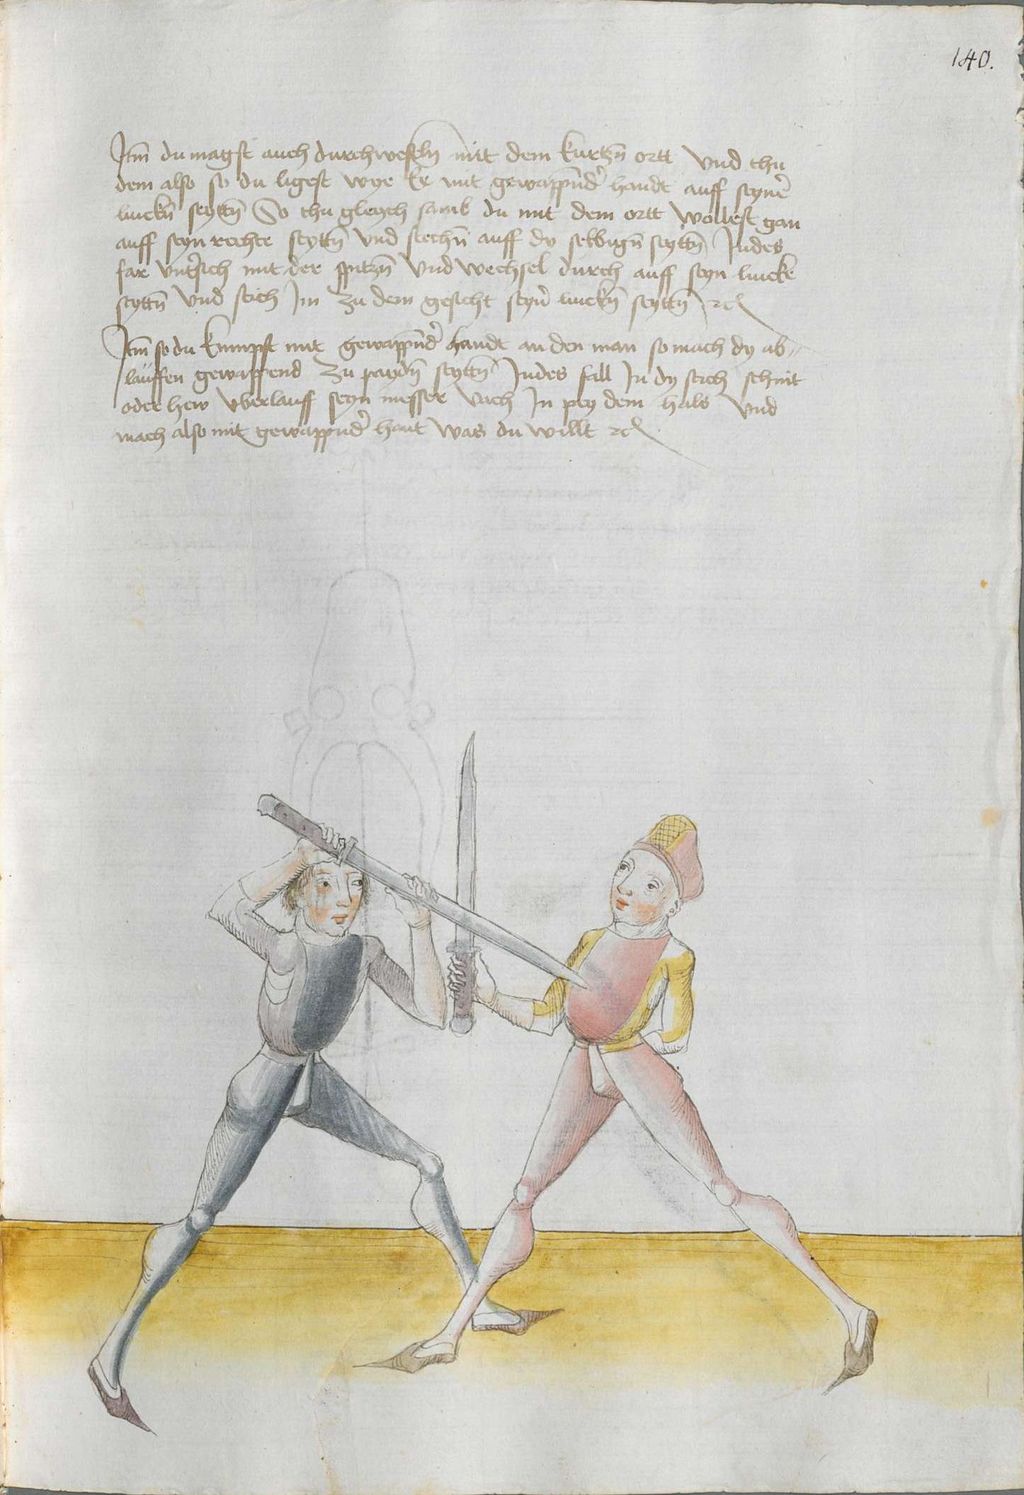 140.
Itm̄ du magst auch durchwechseln̄ mit dem kurtzn̄ ortt Vnd thu
dem also so du ligest wye ee mit gewappnd' handt auff seyne'
linckn̄ seyttn̄ So thu gleych samb du mit dem ortt Wollest gan
auff seyn rechte seyttn̄ Vnd stechn̄ auff dy selbign̄ seyttn̄ Indes
far Vnt'sich mit der spitzn̄ Vnd Wechsel durch auff seyn lincke
seyttn̄ Vnd stich Im zu dem gesicht seyn' linckn̄ seyttn̄ ꝛc
Itm̄ so du kumpst mit gewappnd' handt an den man so mach dy ab=
lauffen gewappend zu paydn̄ seyttn̄ Indes fall In dy stich schnit
oder hew Vberlauff seyn messer Vach In pey dem hals Vnd
mach also mit gewappnd' hant Was du willt ꝛc